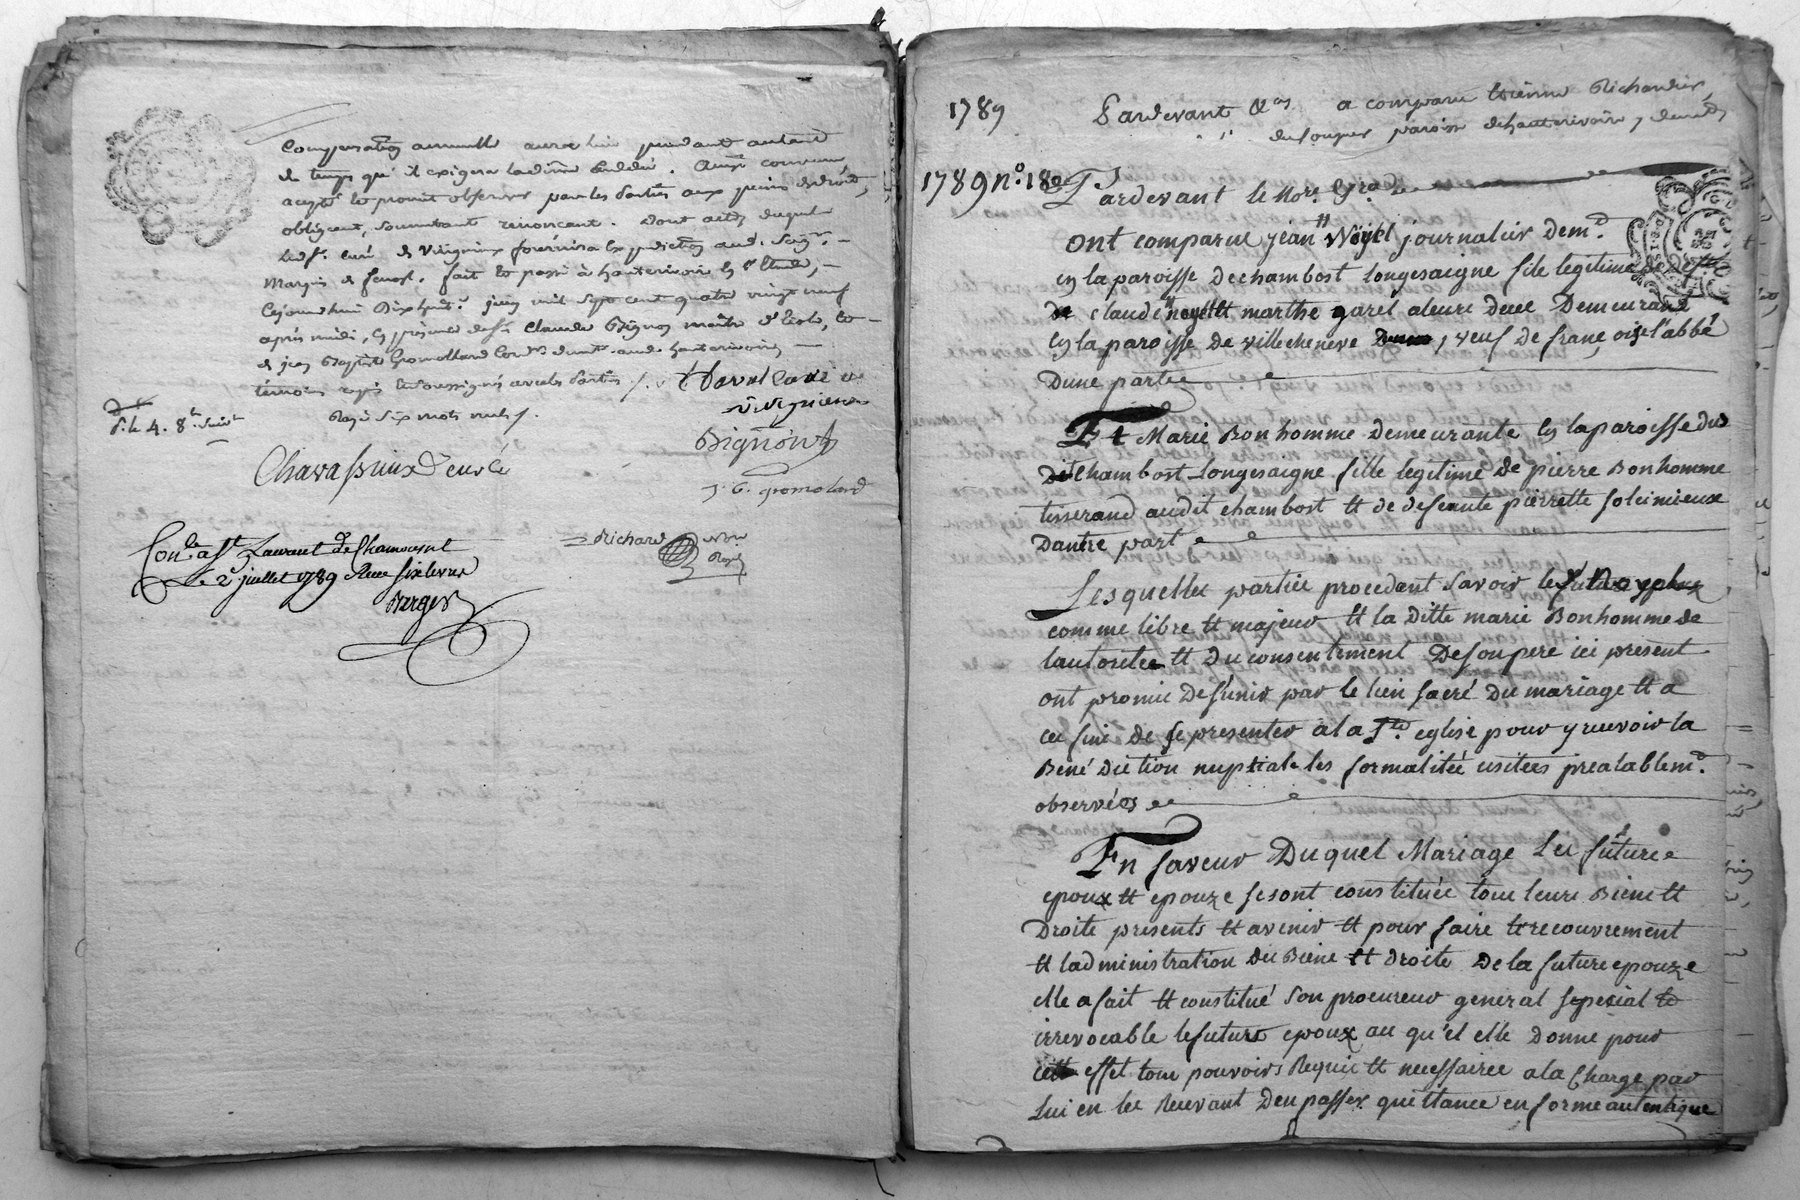 Compensation annuelle aura lieu pendant autant
de temps qu'il exigera
accepté et promis observer par les parties aux peines de droit,
obligeant, soumettant renonçant. Dont acte, duquel
curé de
Marquis de fait et passé à hauterivoire en l'Etude,
Cejourdhui juin mil sept cent quatre vingt neuf
après midi, en présence de Sr Claude Bignon maître d'Ecole, et
de jean Baptiste Gromollard Cord. hauterivoire
témoins soussignés avec les parties
Rayé six mots nuls
P. le 4. 8.
Bignon
Chavassieux curé
J. B. gromolard
Richard
Con.le a St Laurent de Chamousset
Le 2 juillet 1789 Recu six livres
Barge
1789
Pardevant a comparu Etienne Richardier,
paroisse dehauterivoire, demt
1789 n°. 18
Pardevant le No.re
Ont comparue jean Noyel journalier Dem.t
en la paroisse Dechambost Longesaigne fils legitime de
claude noyel tt marthe garel aleurs Decé Demeurant
en la paroisse de villecheneve, veuf de françoise l'abbé
Dune partee
Et Marie Bonhomme Demeurante en la paroisse du
Dit Chambost Longesaigne fille legitime de pierre Bonhomme
tisserand audit chambost tt de defeunte pierrette soleimieux
Dautre part
Lesquelles parties procedent savoir le
comme libre tt majeur tt la Ditte marie Bonhomme de
lautoritee tt du consentement De son pere ici present
ont promis De s'unir par le lien sacré du mariage tt a
ces fins de se presenter a la S.te eglise pour y recevoir la
Bené Diction nuptiale les formalitée usitées prealablem.t
observées
En faveur Duquel Mariage Les futures
epoux tt epouze se sont constituée tous leurs Biens tt
Droits presents tt avenir tt pour faire le recouvrement
tt ladministration Des Biens tt droits De la future epouze
elle a fait tt constitué son procureur general special et
irrevocable le futur epoux au qu'el elle Donne pour
cett effet tous pouvoirs Requis tt necessaires a la Charge par
Lui en les Recevant Den passer quittance en forme autentique